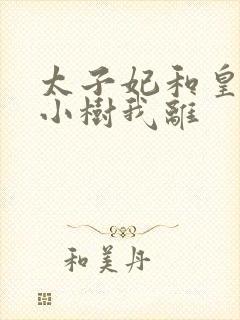 太子妃和皇
小樹我離
和美丹